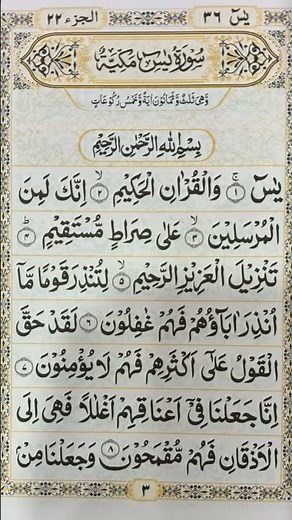 يٰسٓ ٣٦
الجزء ٢٢
سُوْرَةُ يٰسٓ مَكِّيَّةٌ
وَهِيَ ثَلٰثٌ وَّثَمَانُوْنَ اٰيَةً وَّخَمْسُ رُكُوْعَاتٍ
بِسْمِ اللهِ الرَّحْمٰنِ الرَّحِيْمِ
يٰسٓ ۚ‏ ﴿۱﴾ وَالْقُرْاٰنِ الْحَكِيْمِ ۙ‏ ﴿۲﴾ اِنَّكَ لَمِنَ
الْمُرْسَلِيْنَ ۙ‏ ﴿۳﴾ عَلٰى صِرَاطٍ مُّسْتَقِيْمٍ ؕ‏ ﴿۴﴾
تَنْزِيْلَ الْعَزِيْزِ الرَّحِيْمِ ۙ‏ ﴿۵﴾ لِتُنْذِرَ قَوْمًا مَّاۤ
اُنْذِرَ اٰبَآؤُهُمْ فَهُمْ غٰفِلُوْنَ ﴿۶﴾ لَقَدْ حَقَّ
الْقَوْلُ عَلٰٓى اَكْثَرِهِمْ فَهُمْ لَا يُؤْمِنُوْنَ ﴿۷﴾
اِنَّا جَعَلْنَا فِيْۤ اَعْنَاقِهِمْ اَغْلٰلًا فَهِيَ اِلَى
الْاَذْقَانِ فَهُمْ مُّقْمَحُوْنَ ﴿۸﴾ وَجَعَلْنَا مِنْۢ
٣